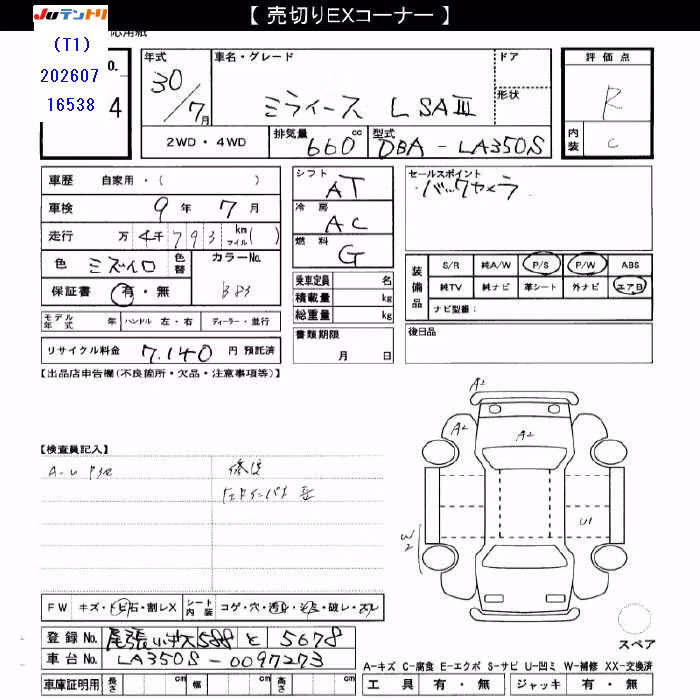 【 売切りEXコーナー 】
JUテントリ
(T1)
202607
16538
応用紙
o.
4
年式
30/7月
車名・グレード
ミライース L SAⅢ
ドア
形状
評価点
R
内装
C
2WD・4WD
排気量
660 cc
型式
DBA-LA350S
車歴 自家用・( )
車検 9年 7月
走行 万 4千 7 9 3 km マイル ( )
色 ミズイロ 色替
カラーNo.
B83
保証書 有・無
モデル年式 年 ハンドル 左・右 ディーラー・並行
リサイクル料金 7,140 円 預託済
シフト
AT
冷房
AC
燃料
G
乗車定員 名
積載量 kg
総重量 kg
書類期限
月 日
セールスポイント
・バックカメラ
装備品
S/R 純A/W P/S P/W ABS
純TV 純ナビ 革シート 外ナビ エアB
ナビ型番:
後日品
【出品店申告欄(不良箇所・欠品・注意事項等)】
【検査員記入】
修復
A2
A2
A2
W2
U1
FW キズ・トビ石・割レX
シート内装 コゲ・穴・汚れ・シミ・破レ・スレ
登録No. 尾張小牧 588 と 5678
車台No. LA350S-0097273
車庫証明用 長さ cm 幅 cm 高さ cm
スペア
A-キズ C-腐食 E-エクボ S-サビ U-凹ミ W-補修 XX-交換済
工具 有・無 ジャッキ 有・無